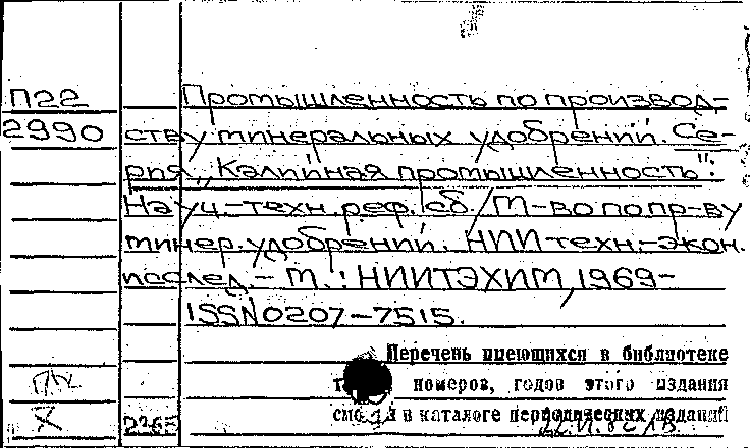 П22 Промышленность по производ-
2990 ству минеральных удобрений. Се-
рия „Калийная промышленность".
Науч.-техн. реф. сб. / М-во по пр-ву
минер. удобрений. НИИ техн.-экон.
исслед. – М.: НИИТЭХИМ, 1969–
ISSN 0207-7515.
Перечень имеющихся в библиотеке
номеров, годов этого издания
в каталоге периодических изданий